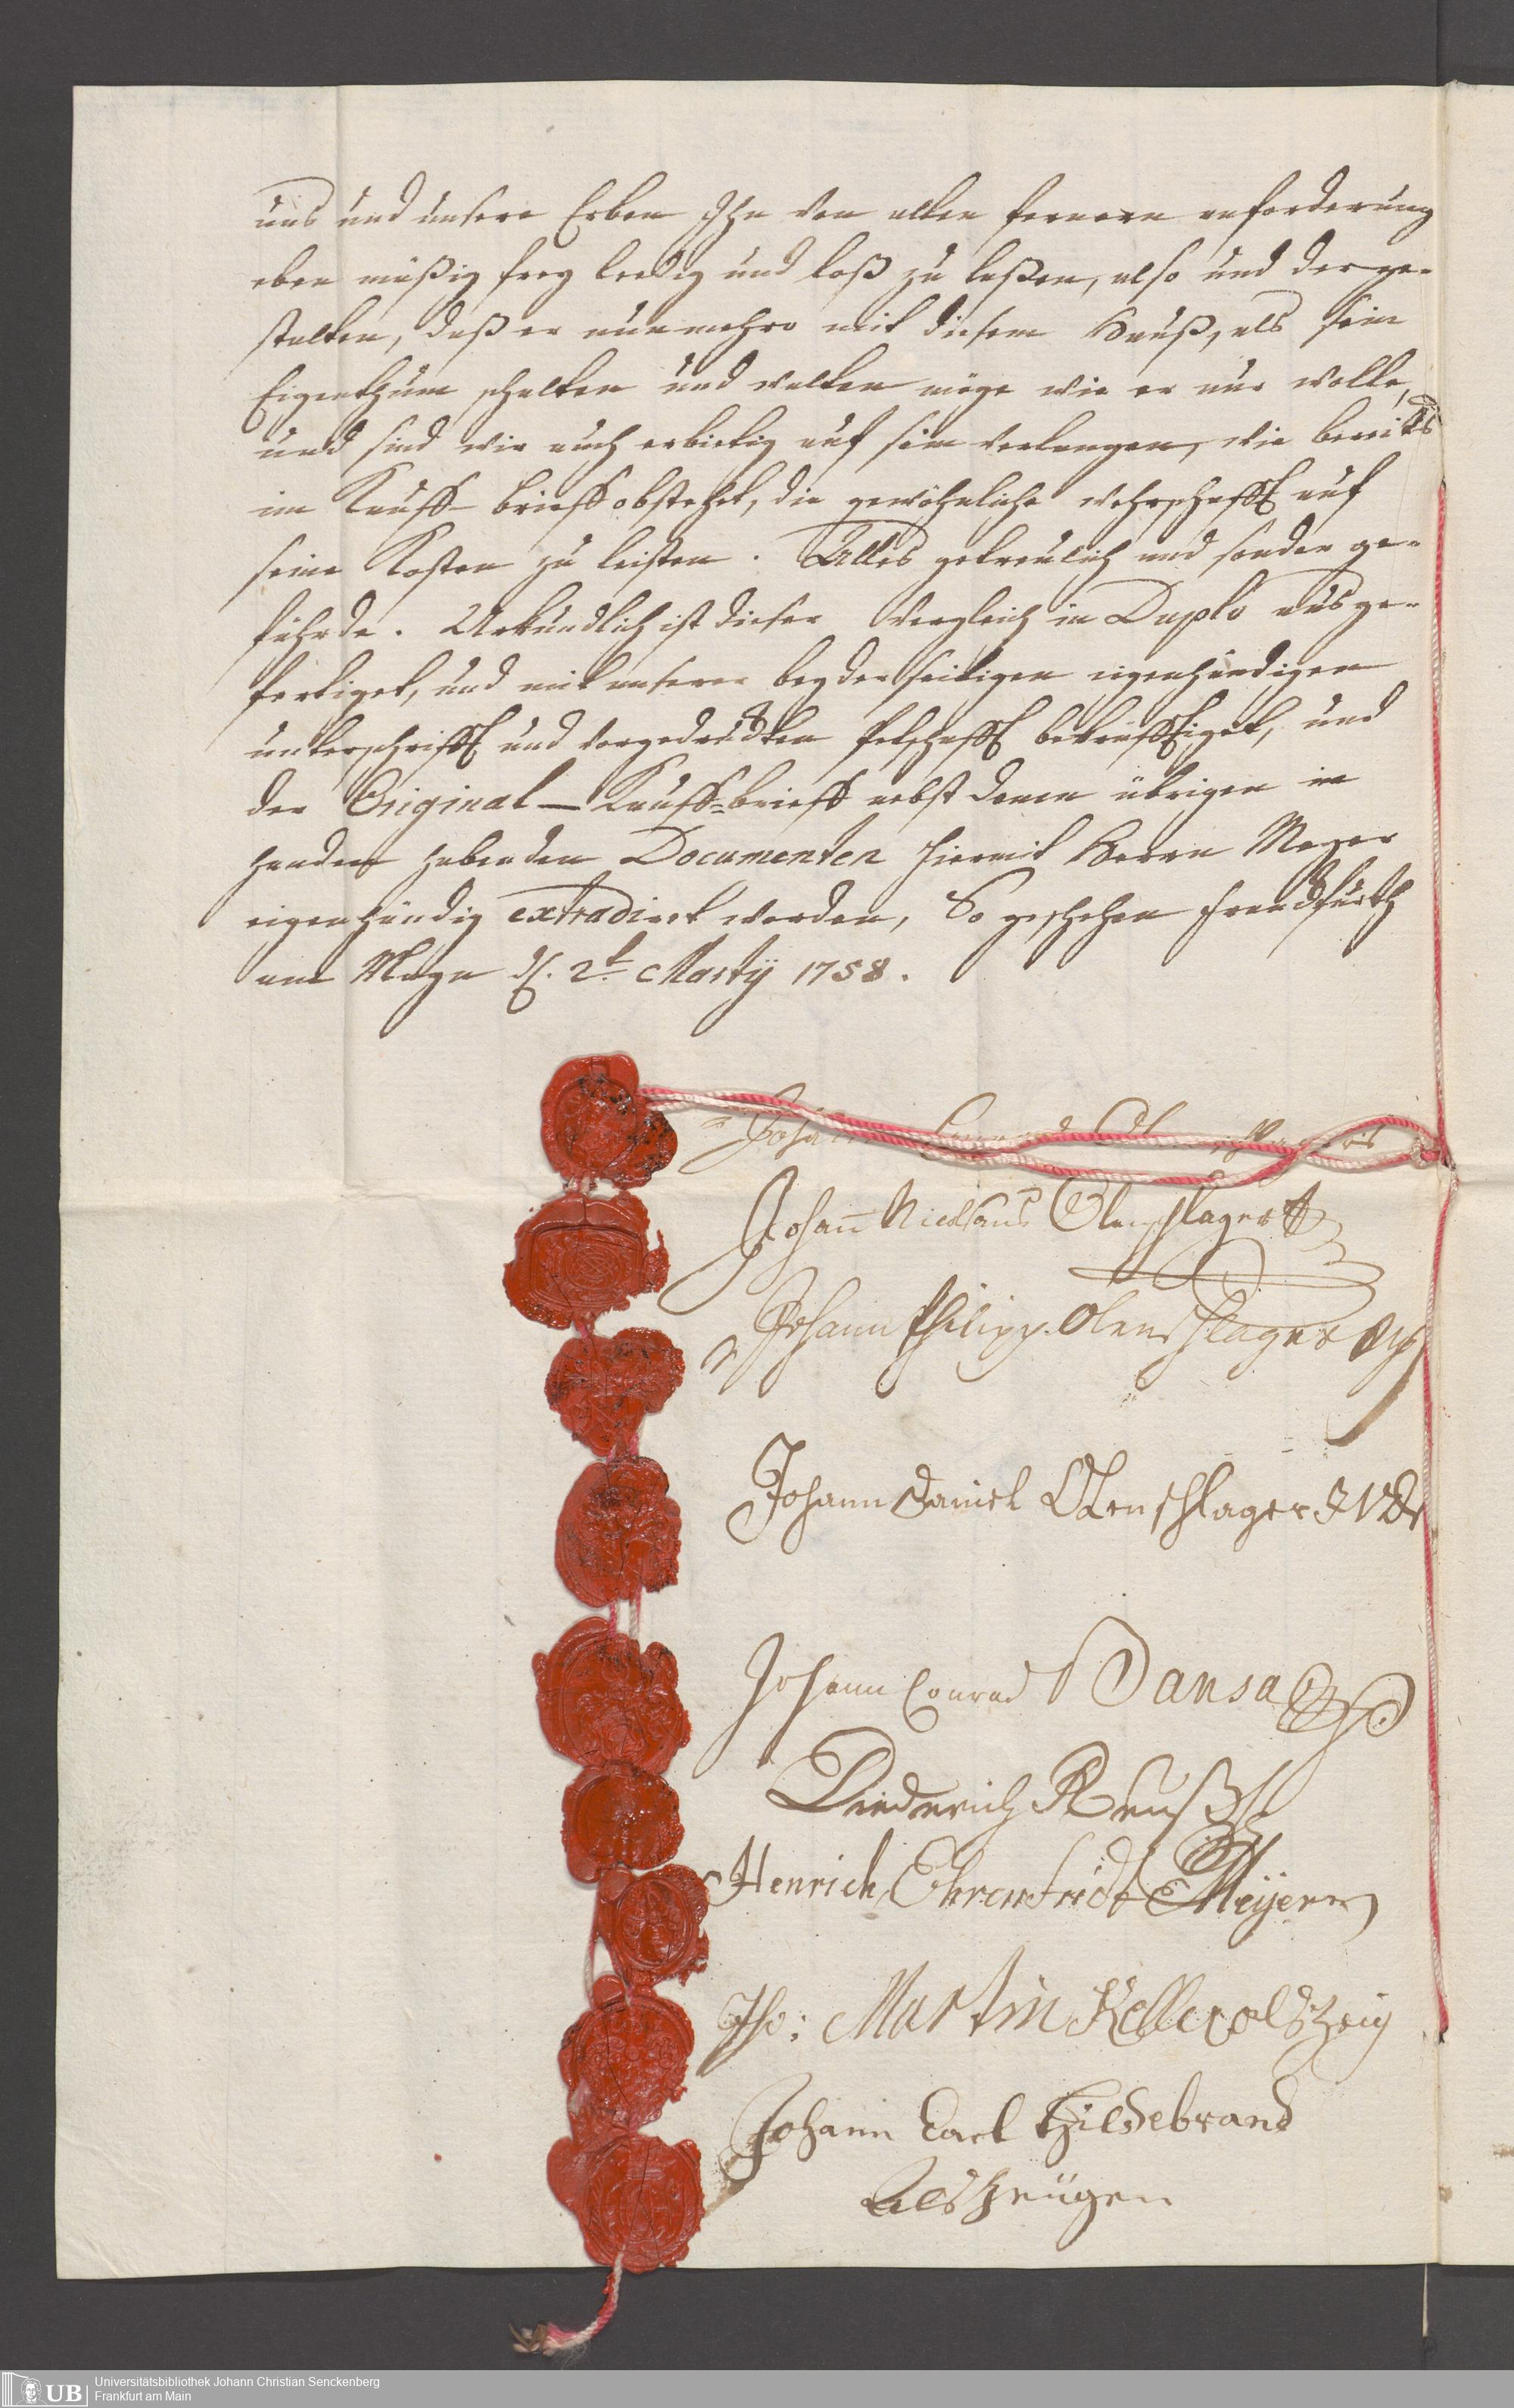 uns und unsere Erben Ihn von allen fernern anforderung
eben mäßig frey leedig und loß zu laßen, also und derge-
stalten, daß er nunmehro mit diesem Hauß, als sein
Eigenthum schalten und walten möge wie er nur wolle,
und sind wir auch erbietig auf sein verlangen, wie bereits
im Kauff-brieff obstehet, die gewöhnliche wehrschafft auf
seine Kosten zu leisten. Alles getreulich und sonder ge-
fährde. Urkundlich ist dieser Vergleich in Duplo ausge-
fertiget, und mit unserer beyderseitigen eigenhändigen
unterschrifft und vorgedruckten Petschafft bekräfftiget, und
der Original-Kauff-brieff nebst denen übrigen in
handen habenden Documenten hiermit Herrn Meyer
eigenhändig extradiret worden, So geschehen Franckfurth
am Mayn d. 2t Martij 1758.
Johann Olenschlager
Johann Nicolaus Olenschlager
Johann Philipp Olenschlager
Johann Daniel Olenschlager JVD
Johann Conrad Dansa
Diederich Reuß
Henrich Ehrenfridt Meijer
Joh: Martin Keller als Zeug
Johann Carl Hildebrand
als Zeugen
UB
Universitätsbibliothek Johann Christian Senckenberg
Frankfurt am Main